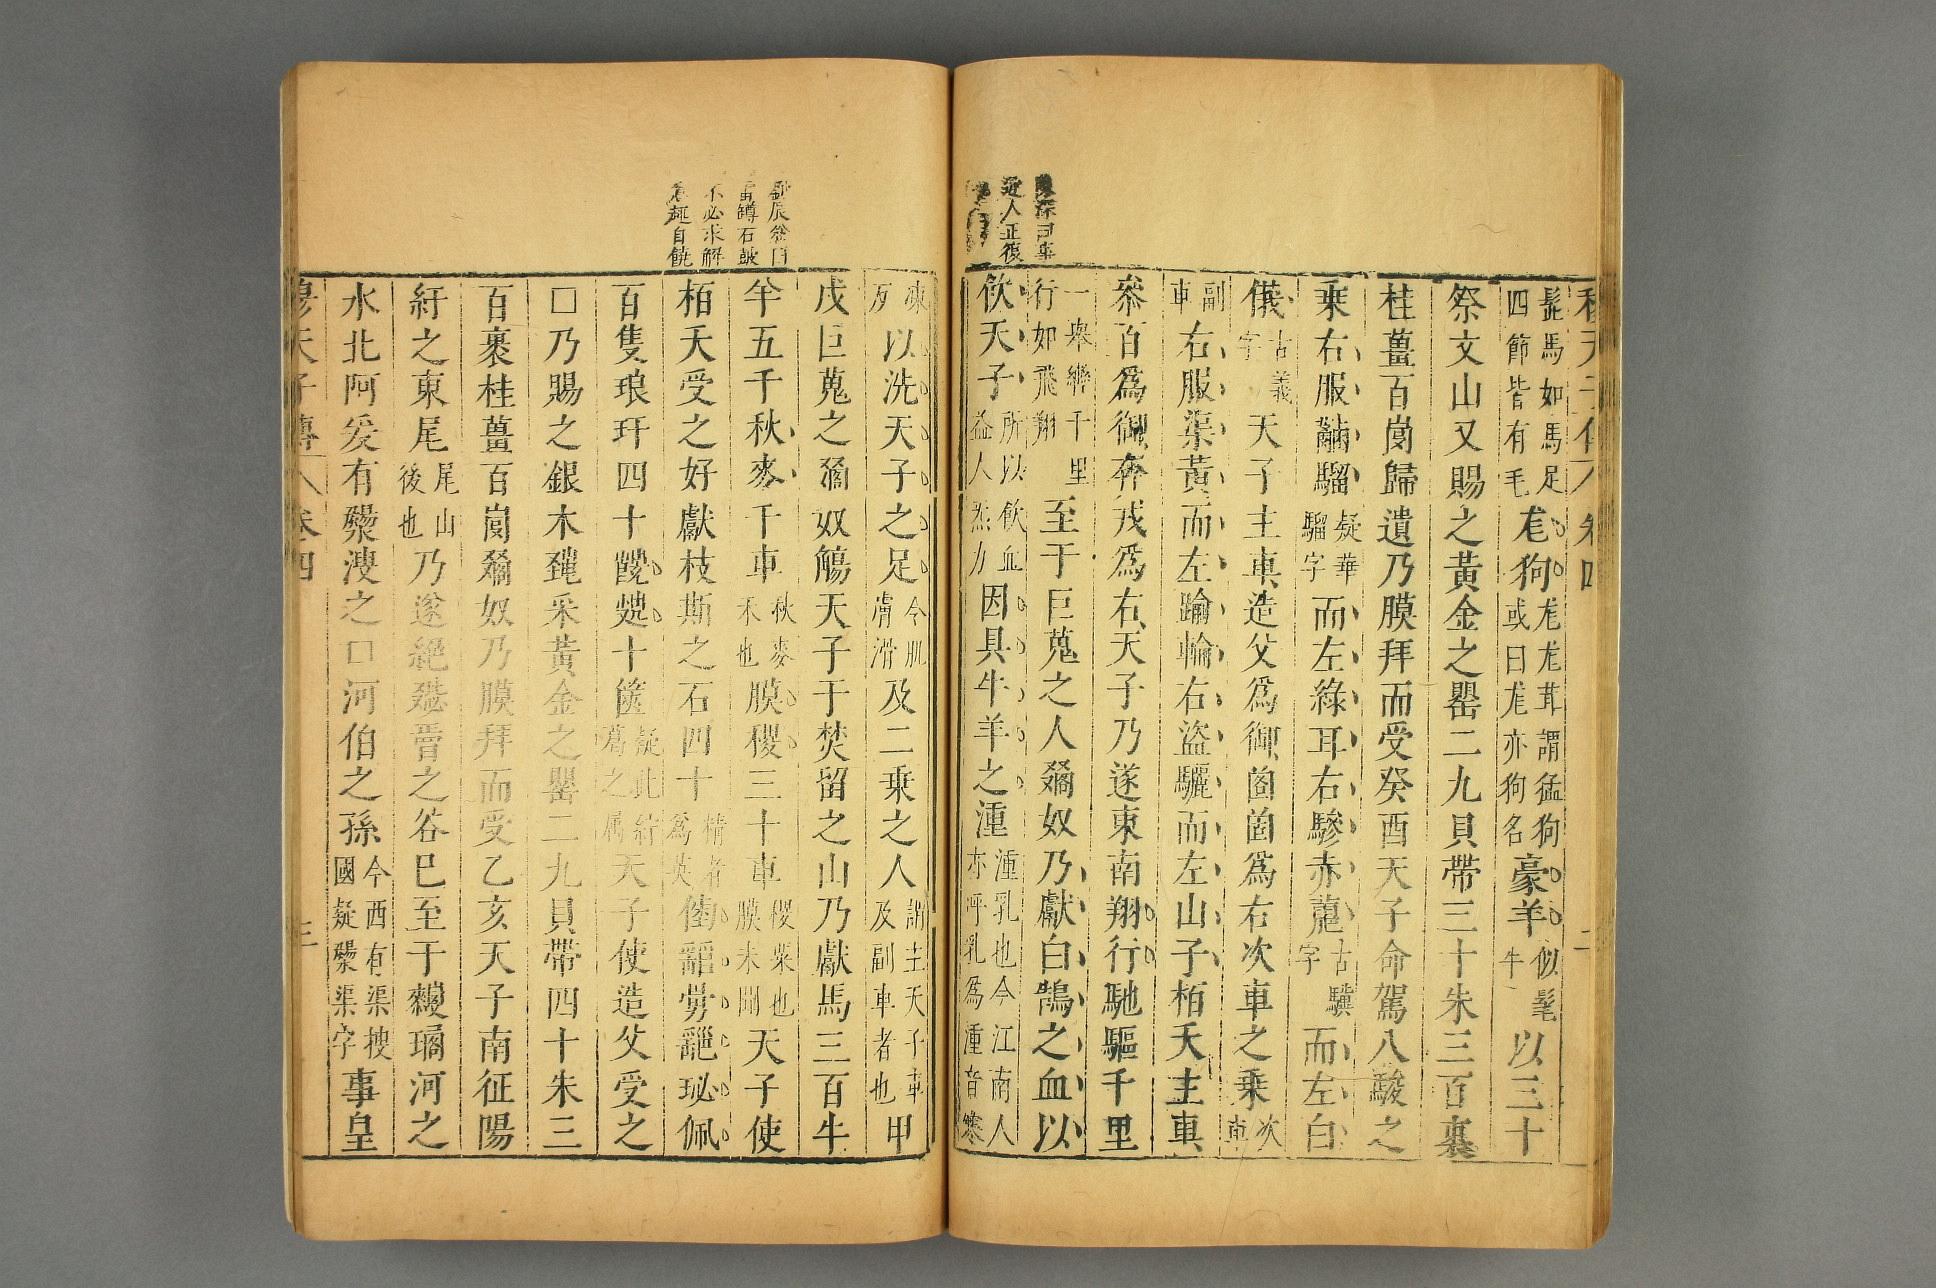 穆天子傳 卷四 二
髭馬如馬足四節皆有毛尨狗尨尨茸謂猛狗或曰尨亦狗名豪羊似髦牛以三十
祭文山又賜之黃金之罌二九貝帶三十朱三百裹
桂薑百𡇈歸遺乃膜拜而受癸酉天子命駕八駿之
乘右服𦽊騮疑華騮字而左綠耳右驂赤蘎古驥字而左白
儀古義字天子主車造父為御𠿟𠿟為右次車之乘次車
副車右服渠黃而左踰輪右盜驪而左山子柏夭主車
參百為御奔戎為右天子乃遂東南翔行馳驅千里
一舉轡千里行如飛翔至于巨蒐之人㸙奴乃獻白鵠之血以
飲天子所以飲血益人炁力因具牛羊之湩湩乳也今江南人亦呼乳為湩音
以洗天子之足令肌膚滑及二乘之人謂主天子車及副車者也甲
戌巨蒐之㸙奴觴天子于焚留之山乃獻馬三百牛
羊五千秋麥千車秋麥禾也膜稷三十車稷粟也膜未聞天子使
柏夭受之好獻枝斯之石四十精者為英珌佩
百隻琅玕四十十篋疑此紵葛之屬天子使造父受之
□乃賜之銀木采黃金之罌二九貝帶四十朱三
百裹桂薑百𡇈㸙奴乃膜拜而受乙亥天子南征陽
紆之東尾尾山後也乃遂絕之谷已至于河之
水北阿爰有溲之□河伯之孫今西有渠搜國疑渠字事皇
穆天子傳 卷四 三
近人正復
石鼓
不必求解
趣自饒